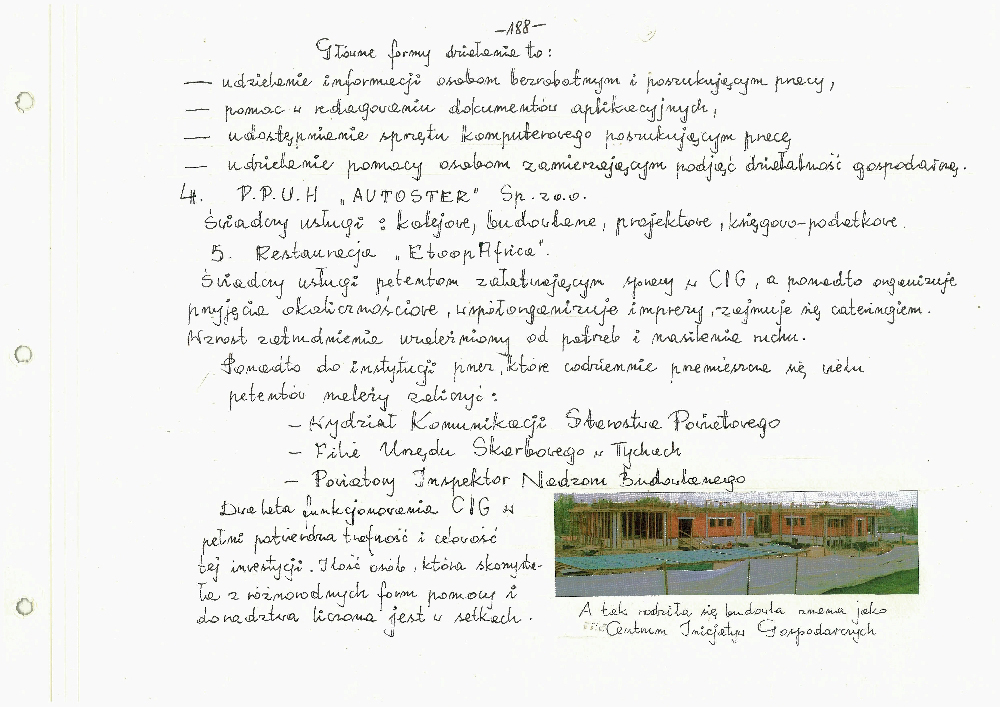 -188-
Główne formy działania to:
— udzielanie informacji osobom bezrobotnym i poszukującym pracy,
— pomoc w redagowaniu dokumentów aplikacyjnych,
— udostępnianie sprzętu komputerowego poszukującym pracę,
— udzielanie pomocy osobom zamierzającym podjąć działalność gospodarczą.
4. P.P.U.H „AUTOSTER" Sp. z o.o.
Świadczy usługi: kolejowe, budowlane, projektowe, księgowo-podatkowe.
5. Restauracja „EtoopAfrica".
Świadczy usługi petentom załatwiającym sprawy w CIG, a ponadto organizuje
przyjęcia okolicznościowe, współorganizuje imprezy, zajmuje się cateringiem.
Wzrost zatrudnienia uzależniony od potrzeb i nasilenia ruchu.
Ponadto do instytucji przez które codziennie przemieszcza się wielu
petentów należy zaliczyć:
- Wydział Komunikacji Starostwa Powiatowego
- Filię Urzędu Skarbowego w Tychach
- Powiatowy Inspektor Nadzoru Budowlanego
Dwa lata funkcjonowania CIG w
pełni potwierdza trafność i celowość
tej inwestycji. Ilość osób, która skorzysta-
ła z różnorodnych form pomocy i
doradztwa liczona jest w setkach.
A tak rodziła się budowla znana jako
Centrum Inicjatyw Gospodarczych